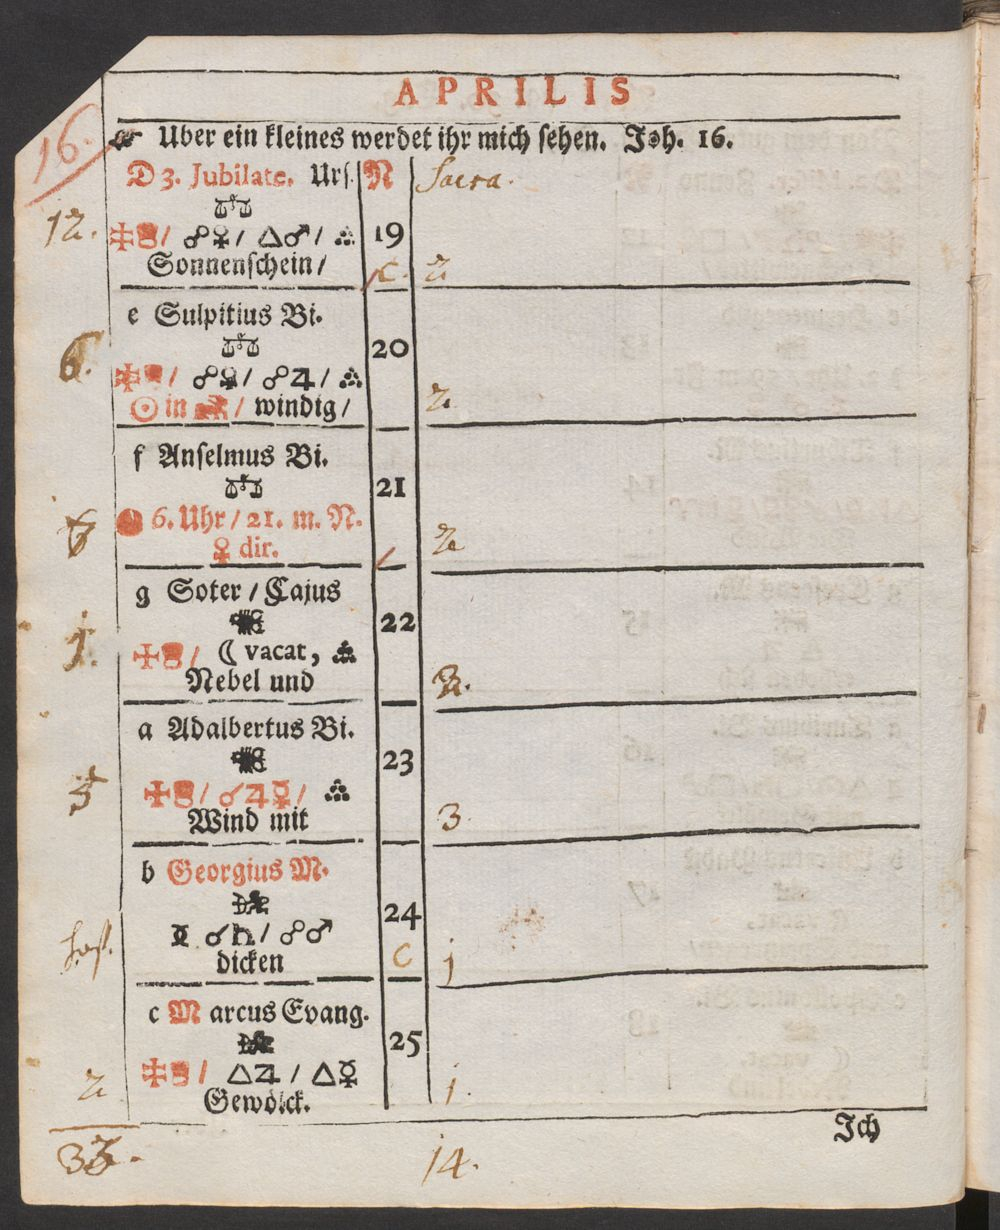 APRILIS
16.
Uber ein kleines werdet ihr mich sehen. Joh. 16.
D 3. Jubilate. Urs. N Sacra.
♎
12. / ☍♀/ △♂/ 19
Sonnenschein/ C. 2
e Sulpitius Bi.
♎ 20
6. / ☍☿/ ☍♃/
☉ in / windig/ 2.
f Anselmus Bi.
♎ 21
6. Uhr/ 21. m. N.
♀ dir. 2
g Soter / Cajus
♏ 22
1. / ☾ vacat,
Nebel und 2.
a Adalbertus Bi.
♏ 23
5 / ☌♃☿/
Wind mit 3.
b Georgius M.
♐ 24
☌♄/ ☍♂
dicken C j
c Marcus Evang.
♐ 25
/ △♃ / △☿
2 Gewölck. j.
Ich
14.